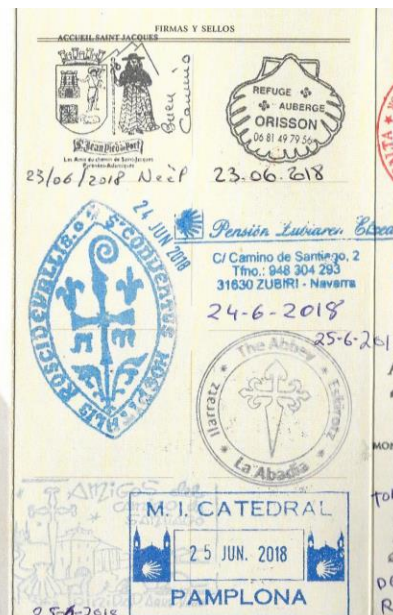 FIRMAS Y SELLOS
ACCUEIL SAINT JACQUES
Buen Camino
St Jean Pied de Port
Les Amis du chemin de Saint-Jacques
Pyrénées-Atlantiques
23/06/2018
REFUGE
AUBERGE
ORISSON
06 81 49 79 56
23.06.2018
24 JUN 2018
S. CONVENTUS HOSPITALIS ROSCIDEVALLIS
Pensión Zubiaren Etxea
C/ Camino de Santiago, 2
Tfno.: 948 304 293
31630 ZUBIRI - Navarra
24-6-2018
25-6-201
The Abbey
Ilarratz
Eskirotz
La Abadía
AMIGOS del
CAMINO DE
SANTIAGO
25-6-2018
M. I. CATEDRAL
25 JUN. 2018
PAMPLONA